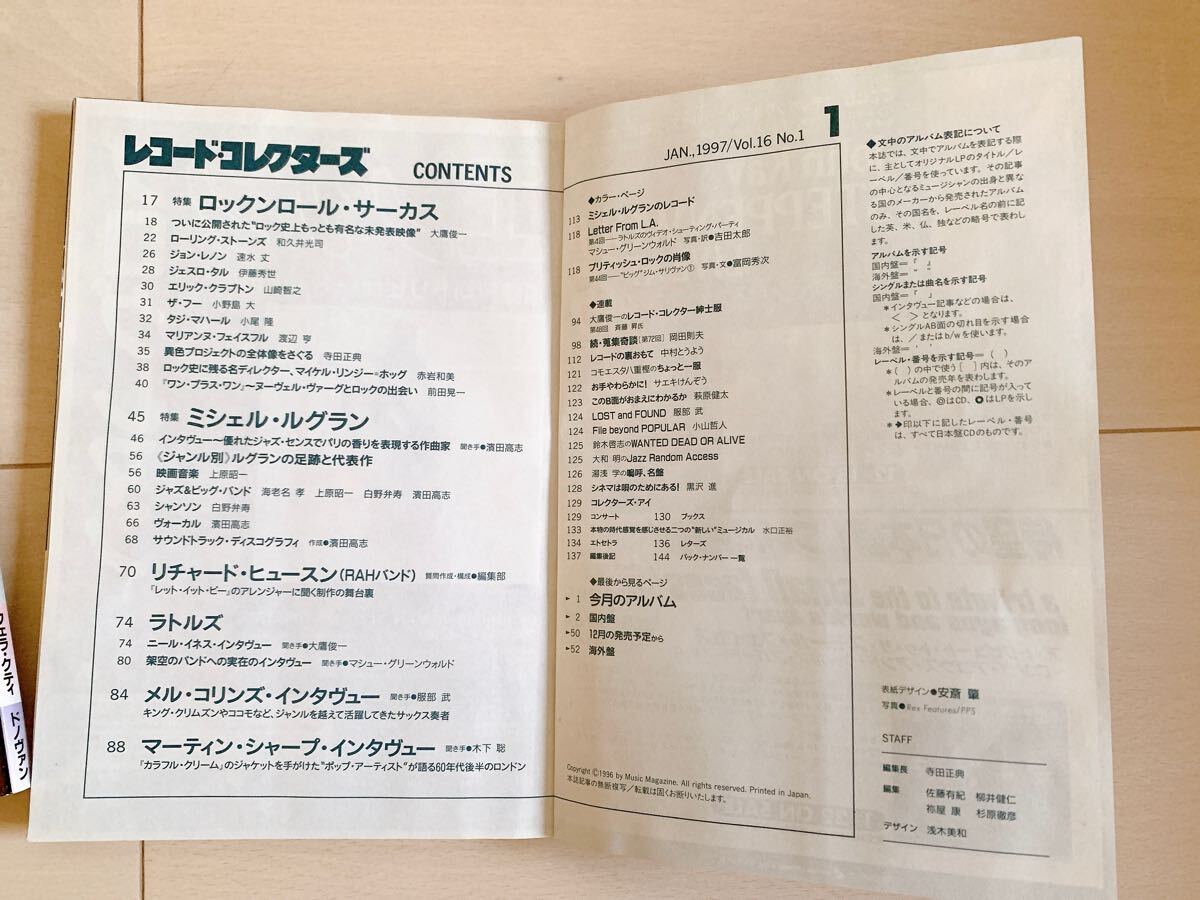 レコード・コレクターズ CONTENTS
17 特集 ロックンロール・サーカス
18 ついに公開された“ロック史上もっとも有名な未発表映像” 大鷹俊一
22 ローリング・ストーンズ 和久井光司
26 ジョン・レノン 速水 丈
28 ジェスロ・タル 伊藤秀世
30 エリック・クラプトン 山崎智之
31 ザ・フー 小野島 大
32 タジ・マハール 小尾 隆
34 マリアンヌ・フェイスフル 渡辺 亨
35 異色プロジェクトの全体像をさぐる 寺田正典
38 ロック史に残る名ディレクター、マイケル・リンジー=ホッグ 赤岩和美
40 『ワン・プラス・ワン』〜ヌーヴェル・ヴァーグとロックの出会い 前田晃一
45 特集 ミシェル・ルグラン
46 インタヴュー〜優れたジャズ・センスでパリの香りを表現する作曲家 聞き手●濱田高志
56 《ジャンル別》ルグランの足跡と代表作
56 映画音楽 上原昭一
60 ジャズ&ビッグ・バンド 海老名 孝 上原昭一 白野弁寿 濱田高志
63 シャンソン 白野弁寿
66 ヴォーカル 濱田高志
68 サウンドトラック・ディスコグラフィ 作成●濱田高志
70 リチャード・ヒュースン(RAHバンド) 質問作成・構成●編集部
『レット・イット・ビー』のアレンジャーに聞く制作の舞台裏
74 ラトルズ
74 ニール・イネス・インタヴュー 聞き手●大鷹俊一
80 架空のバンドへの実在のインタヴュー 聞き手●マシュー・グリーンウォルド
84 メル・コリンズ・インタヴュー 聞き手●服部 武
キング・クリムズンやココモなど、ジャンルを越えて活躍してきたサックス奏者
88 マーティン・シャープ・インタヴュー 聞き手●木下 聡
『カラフル・クリーム』のジャケットを手がけた“ポップ・アーティスト”が語る60年代後半のロンドン
JAN.,1997/Vol.16 No.1
1
◆カラー・ページ
113 ミシェル・ルグランのレコード
118 Letter From L.A.
第4回——ラトルズのヴィデオ・シューティング・パーティ
マシュー・グリーンウォルド 写真・訳●吉田太郎
118 ブリティッシュ・ロックの肖像
第44回——“ビッグ”ジム・サリヴァン① 写真・文●富岡秀次
◆連載
94 大鷹俊一のレコード・コレクター紳士服
第48回 斉藤 昇氏
98 続・蒐集奇談[第72回] 岡田則夫
112 レコードの裏おもて 中村とうよう
121 コモエスタ八重樫のちょっと一服
122 お手やわらかに! サエキけんぞう
123 このB面がおまえにわかるか 萩原健太
124 LOST and FOUND 服部 武
124 File beyond POPULAR 小山哲人
125 鈴木啓志のWANTED DEAD OR ALIVE
125 大和 明のJazz Random Access
126 湯浅 学の嗚呼、名盤
128 シネマは唄のためにある! 黒沢 進
129 コレクターズ・アイ
129 コンサート 130 ブックス
133 本物の時代感覚を感じさせる二つの“新しい”ミュージカル 水口正裕
134 エトセトラ 136 レターズ
137 編集後記 144 バック・ナンバー一覧
◆最後から見るページ
►1 今月のアルバム
►2 国内盤
►50 12月の発売予定から
►52 海外盤
Copyright ©1996 by Music Magazine. All rights reserved. Printed in Japan.
本誌記事の無断複写/転載は固くお断りいたします。
◆文中のアルバム表記について
本誌では、文中でアルバムを表記する際
に、主としてオリジナルLPのタイトル/レ
ーベル/番号を使っています。その記事
の中心となるミュージシャンの出身と異な
る国のメーカーから発売されたアルバム
のみ、その国名を、レーベル名の前に記
した英、米、仏、独などの略号で表わし
ます。
アルバムを示す記号
国内盤=『 』
海外盤=“ ”
シングルまたは曲名を示す記号
国内盤=「 」
*インタヴュー記事などの場合は、
< >となります。
*シングルAB面の切れ目を示す場合
は、/またはb/wを使います。
海外盤=‘ ’
レーベル・番号を示す記号=( )
*( )の中で使う[ ]内は、そのア
ルバムの発売年を表わします。
*レーベルと番号の間に記号が入って
いる場合、◎はCD、●はLPを示し
ます。
*➔印以下に記したレーベル・番号
は、すべて日本盤CDのものです。
表紙デザイン●安斎 肇
写真●Rex Features/PPS
STAFF
編集長 寺田正典
編集 佐藤有紀 柳井健仁
祢屋 康 杉原徹彦
デザイン 浅木美和
フェラ・クティ
ドノヴァン